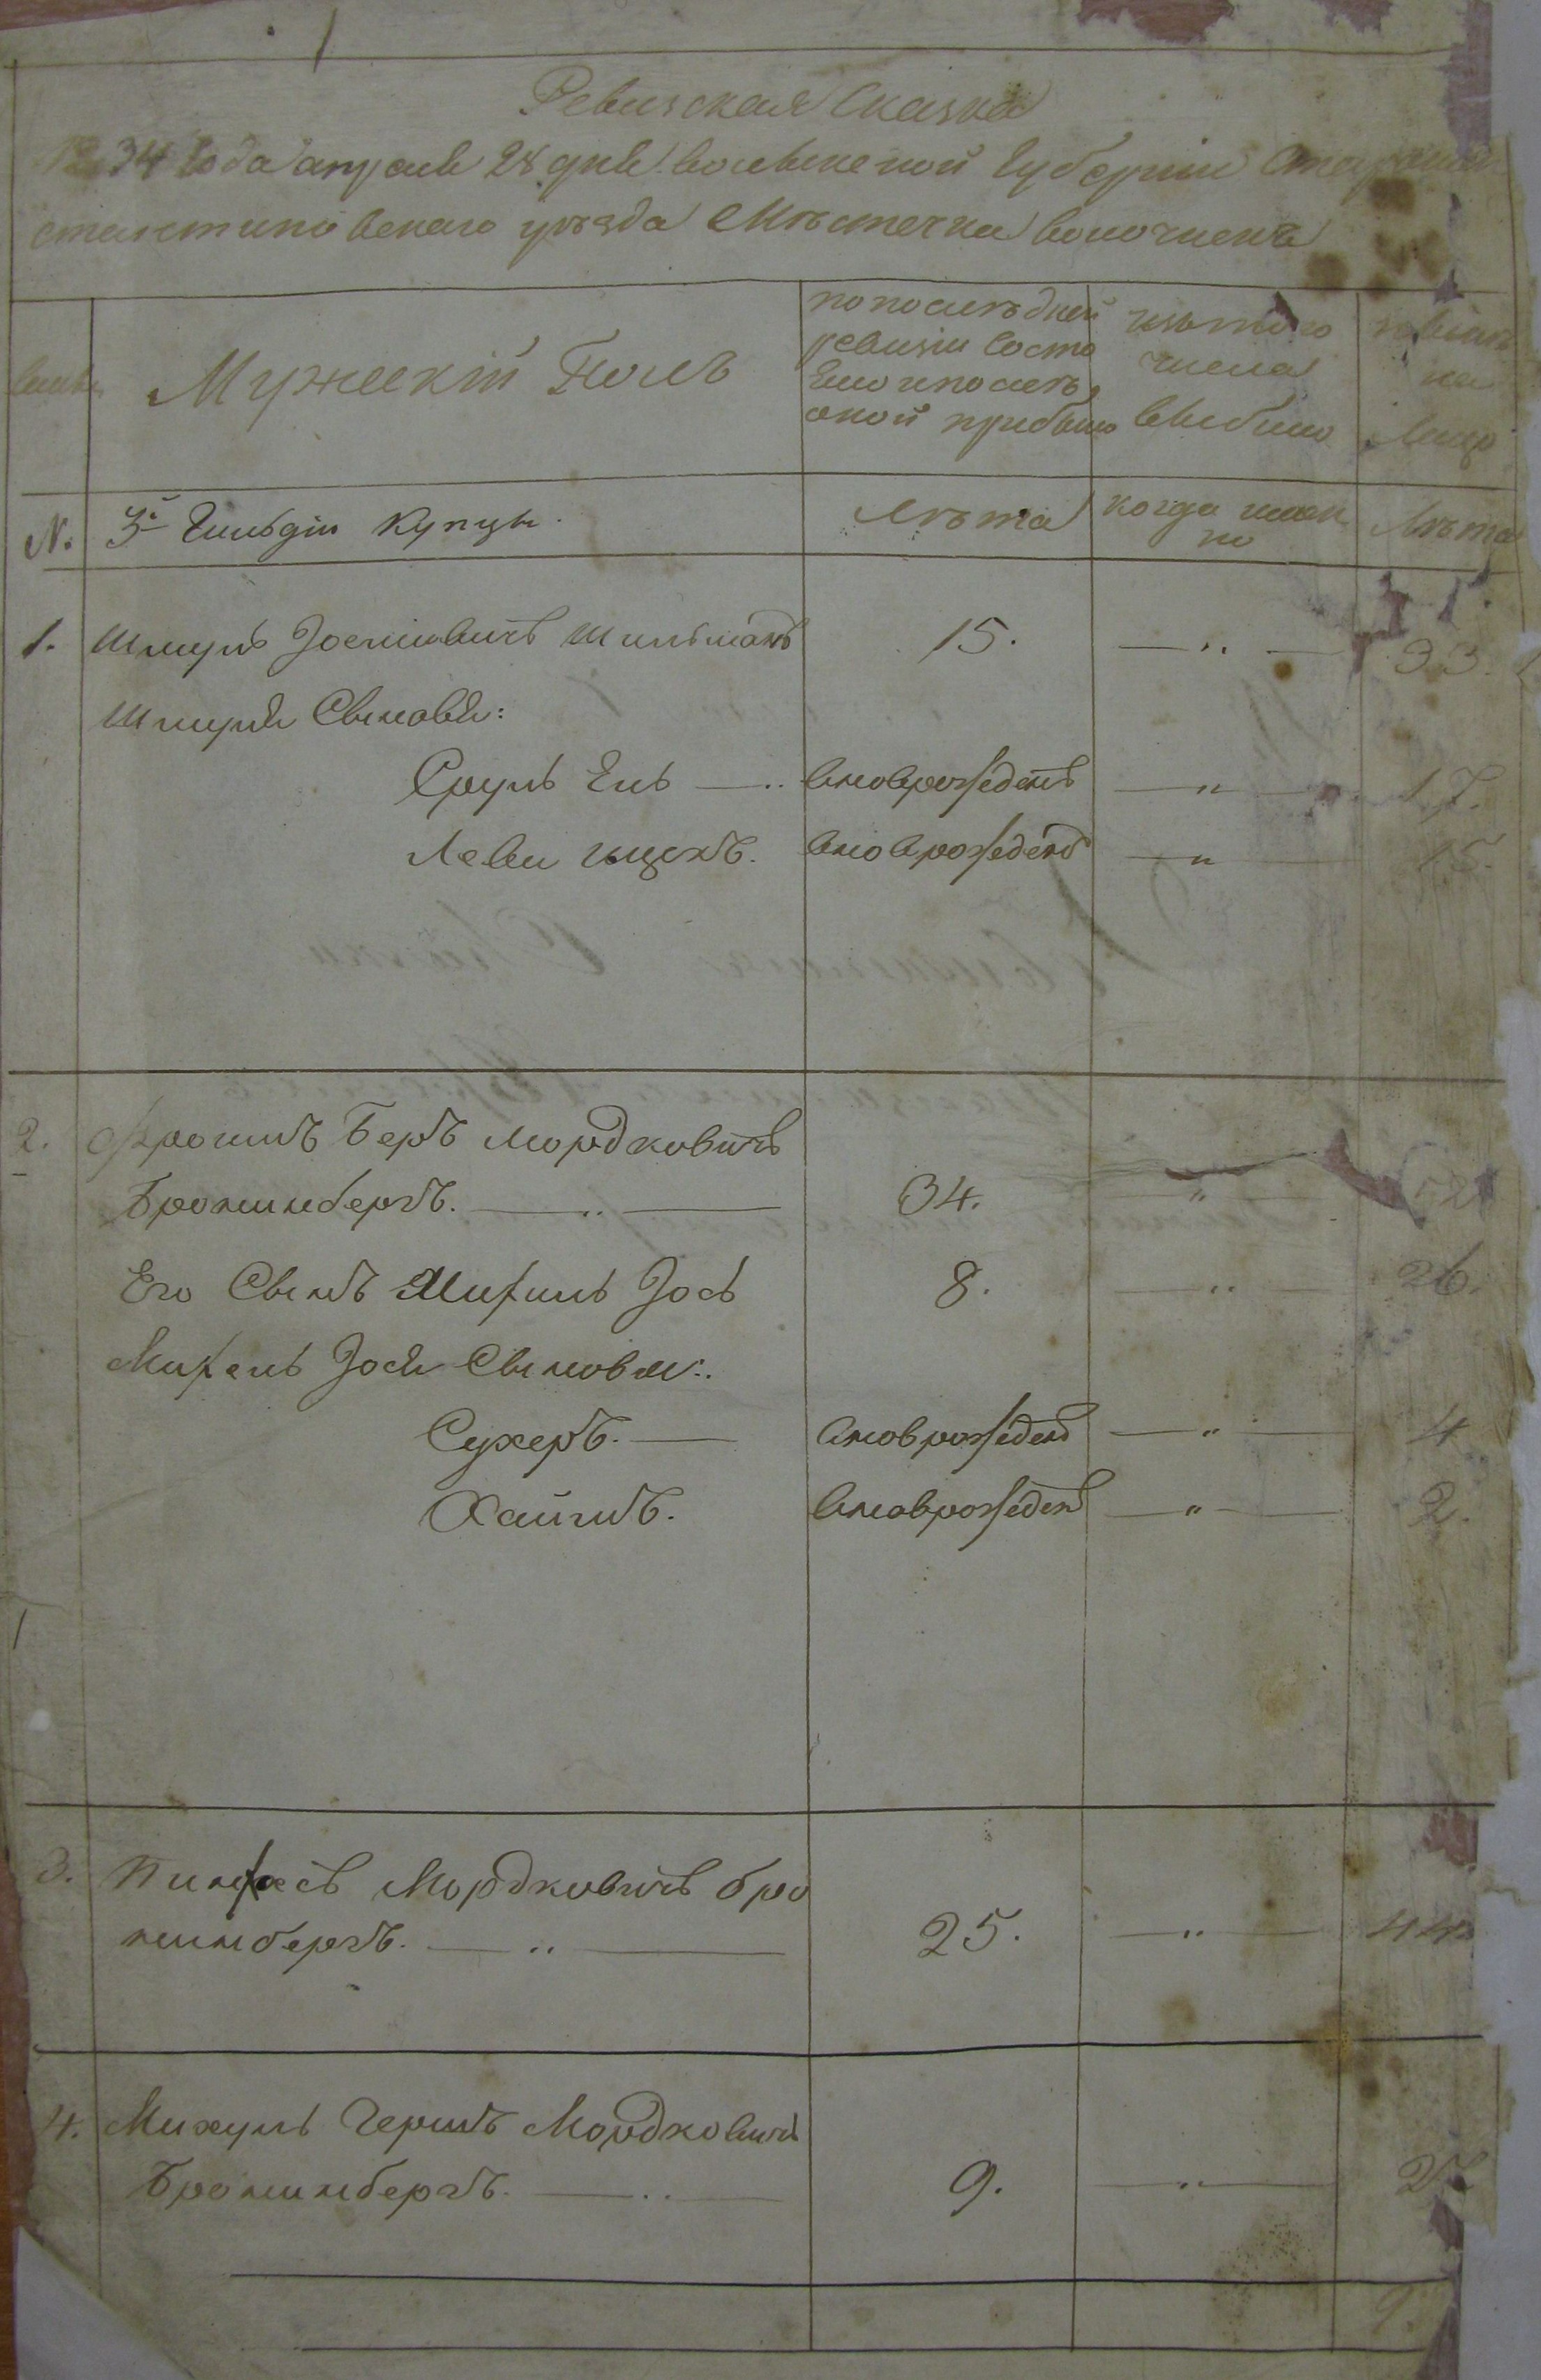 Ревизская Сказка
1834 Года апреля 28 дня Волынской Губернии Старокон
стантиновскаго уезда Местечка Волочиска
Мужескій Полъ
по последней
ревизіи состо
яло и после
оной прибыло
изъ того
числа
выбыло
на
Лицо
№.
3й Гильдіи Купцы.
Лета
когда имен
но
Лета
1. Шмуль Іосiовичъ Шильманъ 15. — " — 33.
Шмуля Сыновья:
Сруль Ель — " внов рожденъ — " — 17.
Леви Ицекъ. внов рожденъ — " — 15.
2. Фроимъ Беръ Мордковичъ
Бронинбергъ. — " — 34. " — 52
Его Сынъ Михель Іось 8. — " — 26.
Михель Іося Сыновья:
Сухеръ. — внов рожденъ — " — 4
Хаимъ. внов рожденъ — " — 2.
3. Пинхасъ Мордковичъ Бро
нинбергъ. — " — 25. — " — 44
4. Михуль Гершъ Мордковичъ
Бронинбергъ. — " — 9. — " — 27
9.